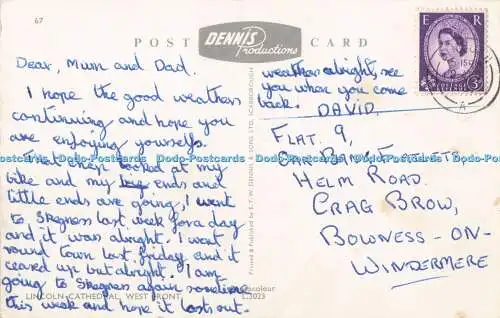 67
POST DENNIS Productions CARD
E R
3D
Dear, Mum and Dad.
I hope the good weathers
continuing and hope you
are enjoying yourselfs.
looked at my
bike and my ends and
little ends are going, I went
to Skegness last week for a day
and it was alright. I went
round town last friday and it
ceared up but alright. I am
going to Skegness again sometime
this week and hope it lasts out.
LINCOLN CATHEDRAL, WEST FRONT.
L.3023
weather alright, see
you when you come
back. DAVID.
FLAT 9,
HELM ROAD.
CRAG BROW,
BOWNESS-ON-
WINDERMERE
Printed & Published by E. T. W. DENNIS & SONS LTD., SCARBOROUGH
Dodo-Postcards Dodo-Postcards Dodo-Postcards Dodo-Postcards Dodo-Postcards